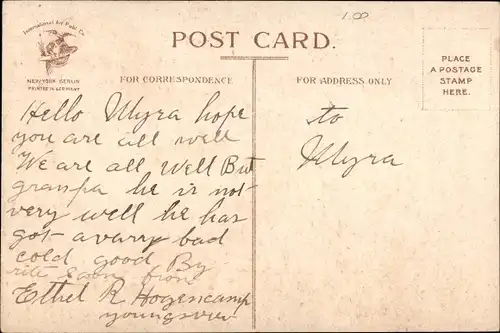 International Art Publ. Co.
NEW YORK BERLIN
PRINTED IN GERMANY
1.00
POST CARD.
FOR CORRESPONDENCE
FOR ADDRESS ONLY
PLACE
A POSTAGE
STAMP
HERE.
Hello Myra hope
you are all well
We are all well But
granspa he is not
very well he has
got a varry bad
cold good By
rite soon from
Ethel R Hogencamp
to
Myra